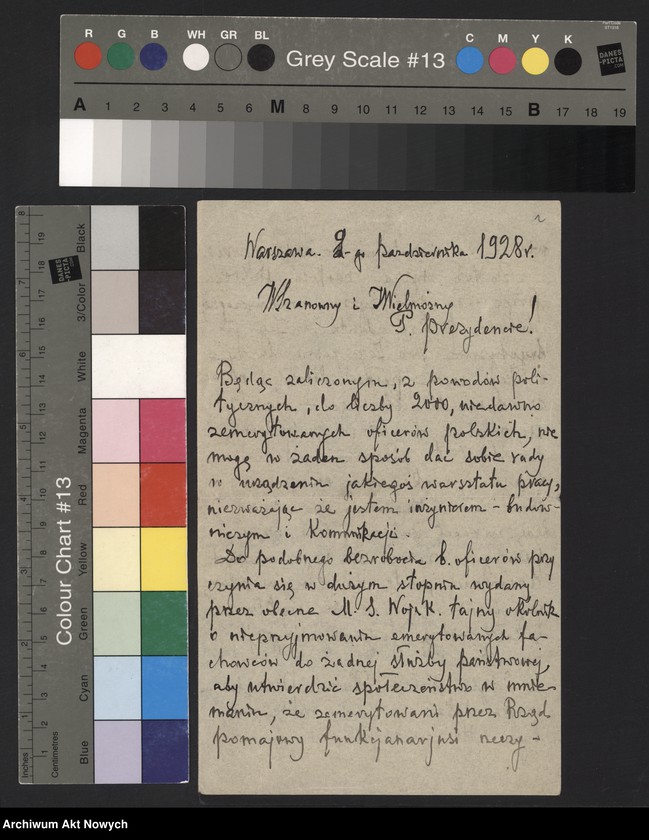 R G B WH GR BL Grey Scale #13 C M Y K
DANES
-PICTA
.COM
A 1 2 3 4 5 6 M 8 9 10 11 12 13 14 15 B 17 18 19
Colour Chart #13
Inches
Centimetres
Blue Cyan Green Yellow Red Magenta White 3/Color Black
DANES
-PICTA
.COM
Warszawa. 2-go października 1928r.
Wszanowny i Wielmożny
P. Prezydencie!
Będąc zaliczonym, z powodów poli-
tycznych, do liczby 2000, niedawno
zemerytowanych oficerów polskich, nie
mogę w żaden sposób dać sobie rady
w urządzeniu jakiegoś warsztatu pracy,
niezważając że jestem inżynierem - budow-
niczym i Komunikacji.
Do podobnego bezrobocia b. oficerów przy
czynia się w dużym stopniu wydany
przez obecne M. S. Wojsk. tajny okólnik
o nieprzyjmowaniu emerytowanych fa-
chowców do żadnej służby państwowej,
aby utwierdzić społeczeństwo w mnie
maniu, że zemerytowani przez Rząd
pomajowy funkcjonarjusi rzeczy-
Archiwum Akt Nowych